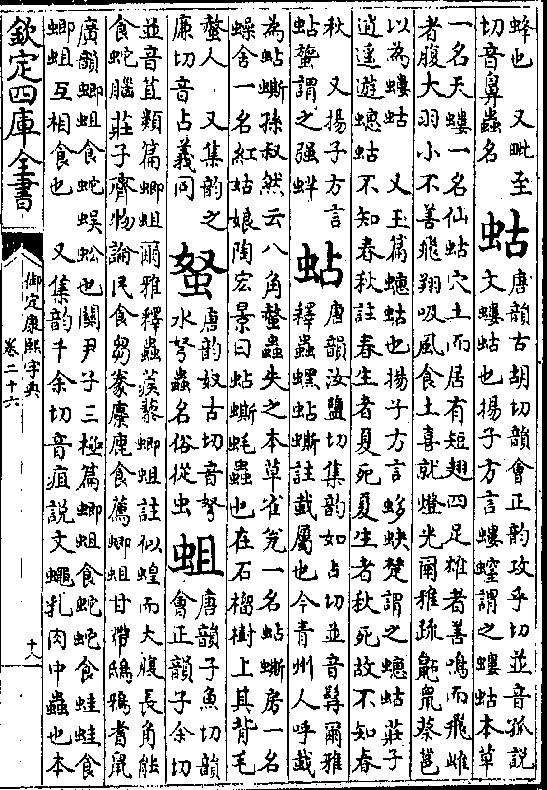 蜂也　又毗至
切音鼻蟲名
蛄
唐韻古胡切韻會正韵攻乎切並音孤說
文螻蛄也揚子方言螻螲謂之螻蛄本草
一名天螻一名仙蛄穴土而居有短翅四足雄者善鳴而飛雌
者腹大羽小不善飛翔吸風食土喜就燈光爾雅疏鼫鼠蔡邕
以為螻蛄　又玉篇蟪蛄也揚子方言蛥蚗楚謂之蟪蛄莊子
逍遥遊蟪蛄不知春秋註春生者夏死夏生者秋死故不知春
秋　又揚子方言
蛄謂之强蛘
蛅
唐韵汝鹽切集韵如占切並音髯爾雅
釋蟲蟔蛅蟴註蛓屬也今青州人呼蛓
為蛅蟴孫叔然云八角螫蟲失之本草雀瓮一名蛅蟴房一名
舍一名紅姑娘陶宏景曰蛅蟴蚝蟲也在石榴樹上其背毛
螫人　又集韵之
廉切音占義同
唐韵奴古切音弩
水弩蟲名俗從虫
蛆
唐韻子魚切韻
會正韻子余切
並音苴類篇蝍蛆爾雅釋蟲蒺藜蝍蛆註似蝗而大腹長角能
食蛇腦莊子齊物論民食芻豢麋鹿食薦蝍蛆甘帶鴟鴉耆鼠
廣韻蝍蛆食蛇蜈蚣也關尹子三極篇蝍蛆食蛇蛇食蛙蛙食
蝍蛆互相食也　又集韵千余切音疽說文蠅乳肉中蟲也本
欽定四庫全書
御定康熙字典
卷二十六
十八